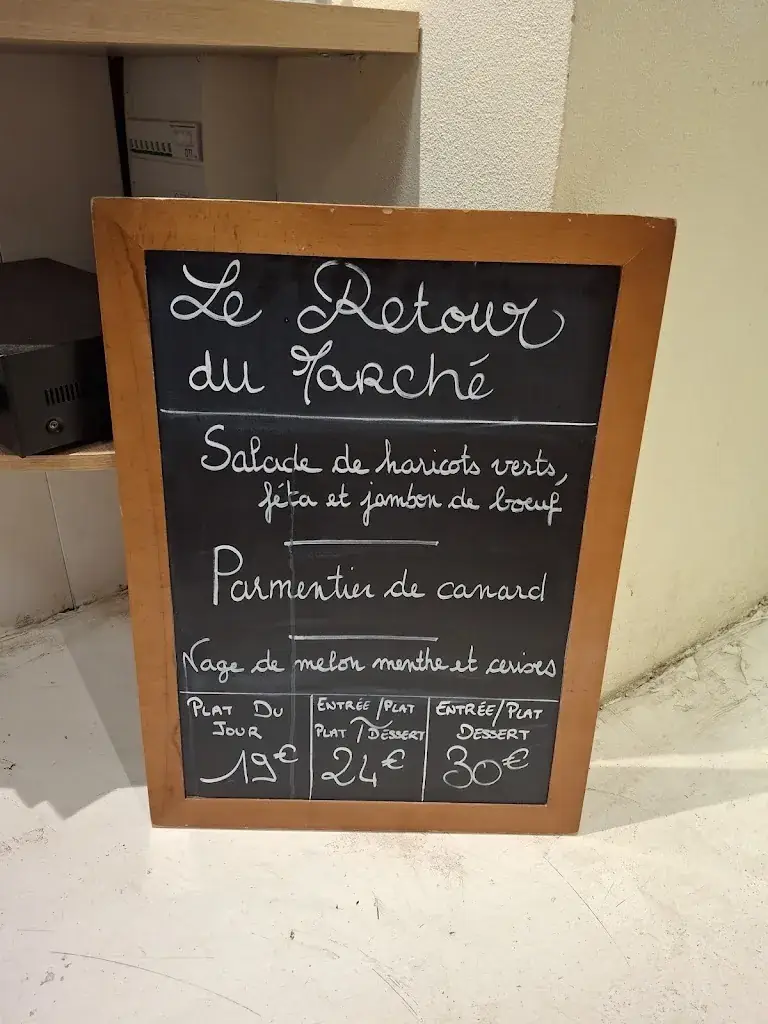 Le Retour
du Marché
Salade de haricots verts,
féta et jambon de boeuf
Parmentier de canard
Nage de melon menthe et cerises
PLAT DU
JOUR
19€
ENTRÉE/PLAT
PLAT/DESSERT
24€
ENTRÉE/PLAT
DESSERT
30€